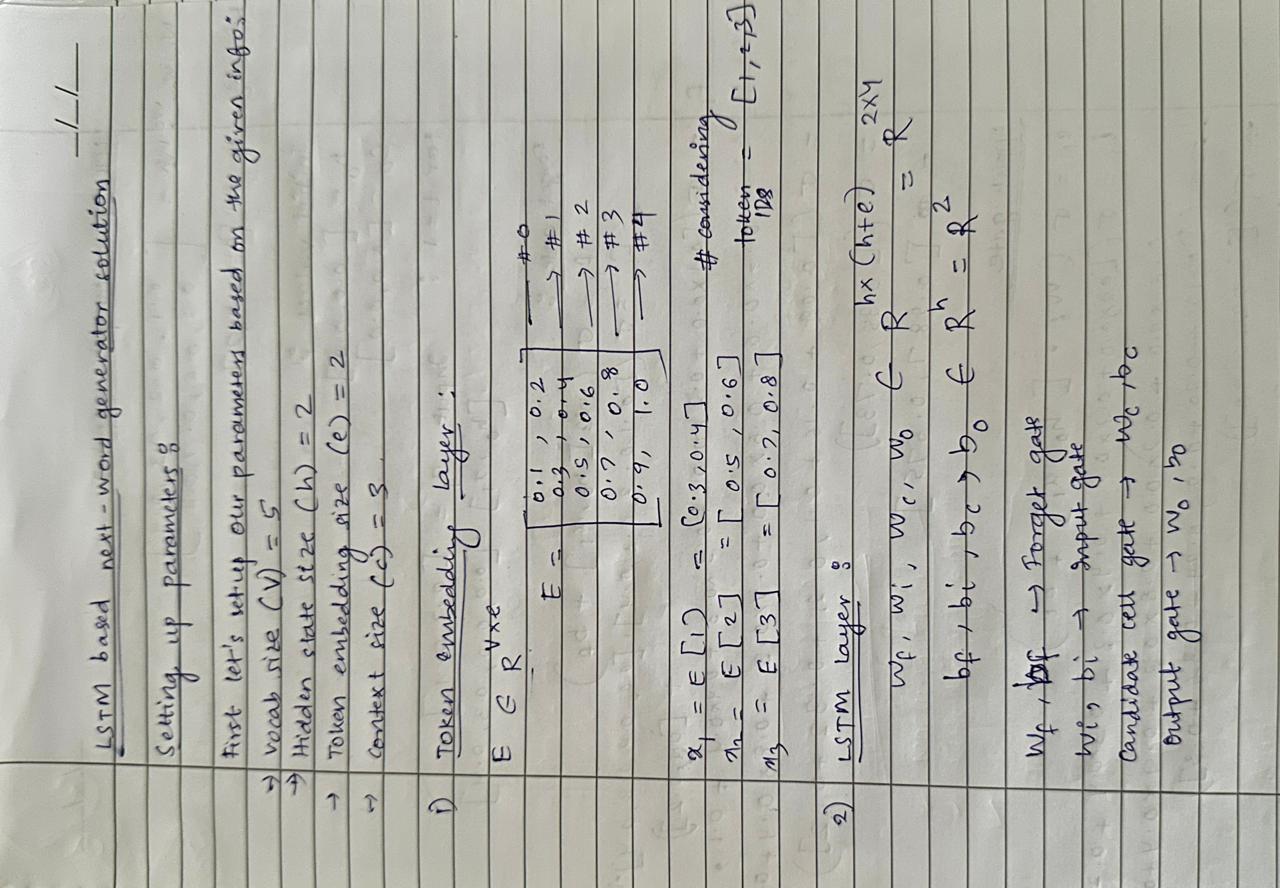 _/_/_
LSTM based next-word generator solution
Setting up parameters:
First let's setup our parameters based on the given info:
→ Vocab size (V) = 5
→ Hidden state size (h) = 2
→ Token embedding size (e) = 2
→ Context size (c) = 3
1) Token embedding layer:
E ∈ R^{V×e}
E = [0.1, 0.2 → #0
0.3, 0.4 → #1
0.5, 0.6 → #2
0.7, 0.8 → #3
0.9, 1.0] → #4
x₁ = E[1] = [0.3, 0.4] # considering
x₂ = E[2] = [0.5, 0.6] token IDs = [1, 2, 3]
x₃ = E[3] = [0.7, 0.8]
2) LSTM layer:
Wf, Wi, Wc, Wo ∈ R^{h×(h+e)} = R^{2×4}
bf, bi, bc, bo ∈ R^h = R^2
Wf, bf → Forget gate
Wi, bi → Input gate
Candidate cell gate → Wc, bc
Output gate → Wo, bo